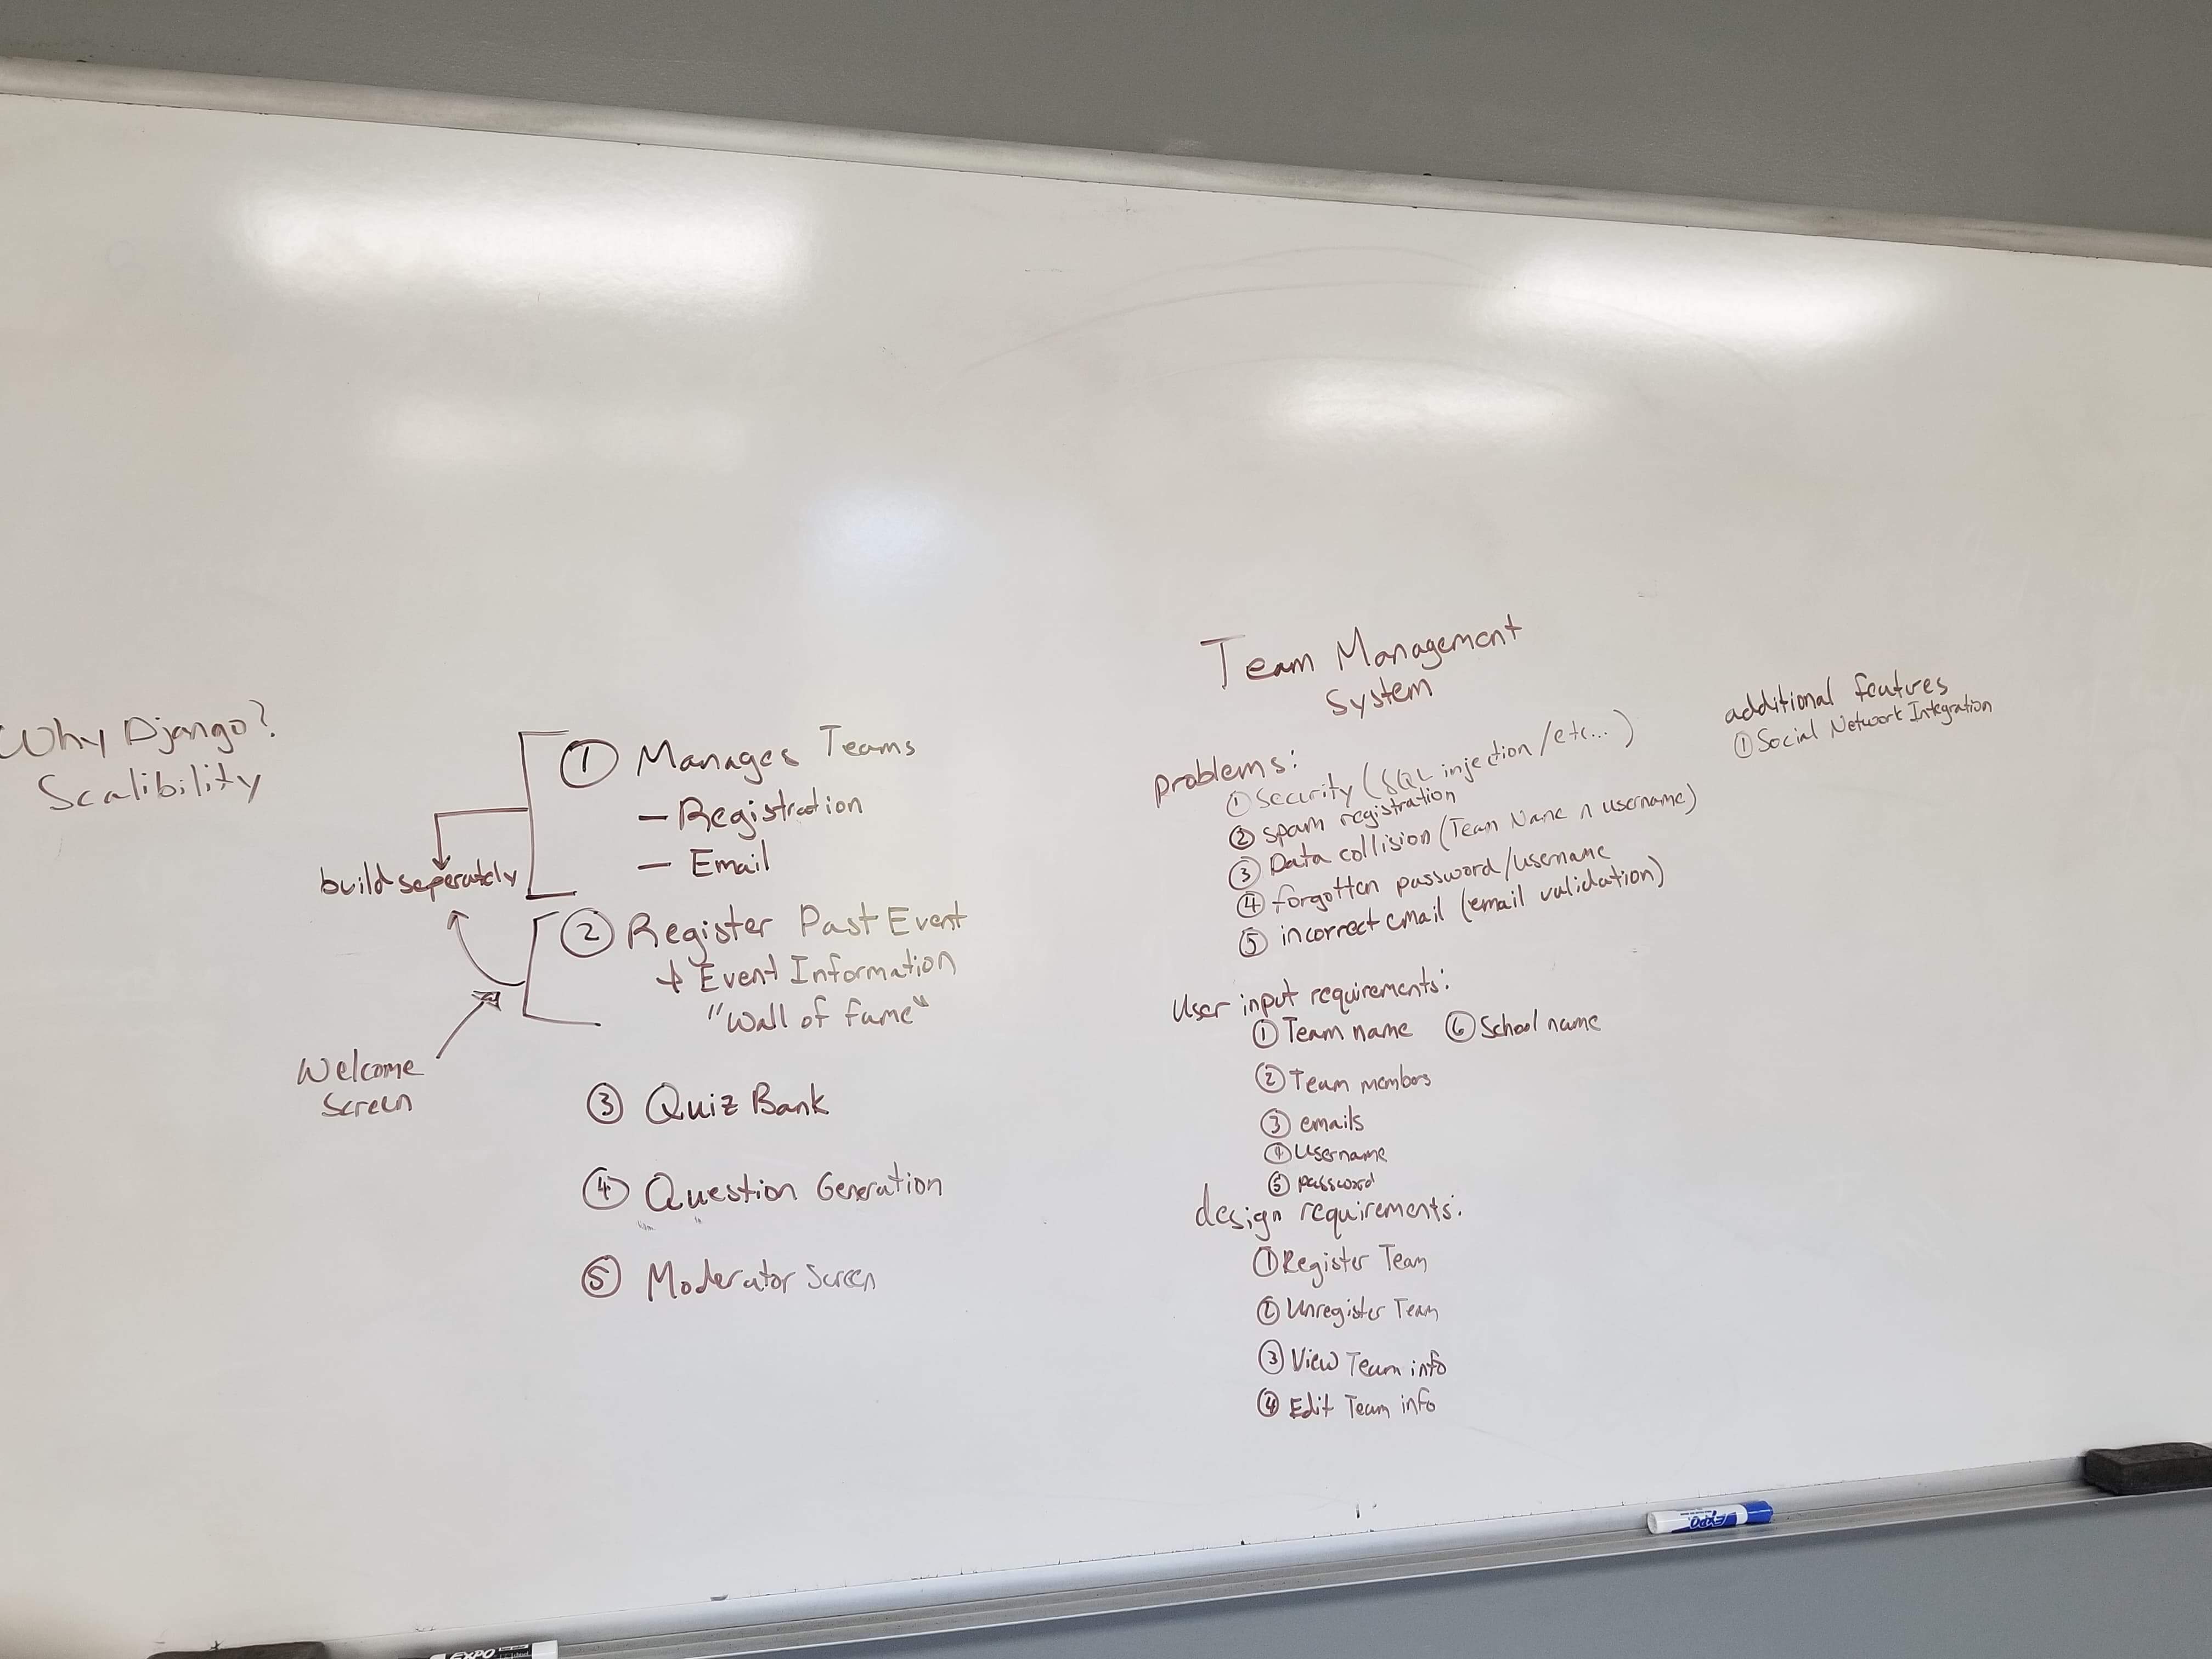 Why Django?
Scalibility
build seperately
Welcome
Screen
① Manages Teams
— Registration
— Email
② Register Past Event
+ Event Information
"Wall of fame"
③ Quiz Bank
④ Question Generation
⑤ Moderator Screen
Team Management
System
problems:
① Security (SQL injection/etc...)
② spam registration
③ Data collision (Team Name ∩ username)
④ forgotten password/username
⑤ incorrect email (email validation)
User input requirements:
① Team name ⑥ School name
② Team members
③ emails
④ Username
⑤ password
design requirements:
① Register Team
② Unregister Team
③ View Team info
④ Edit Team info
additional features
① Social Network Integration
EXPO
EXPO